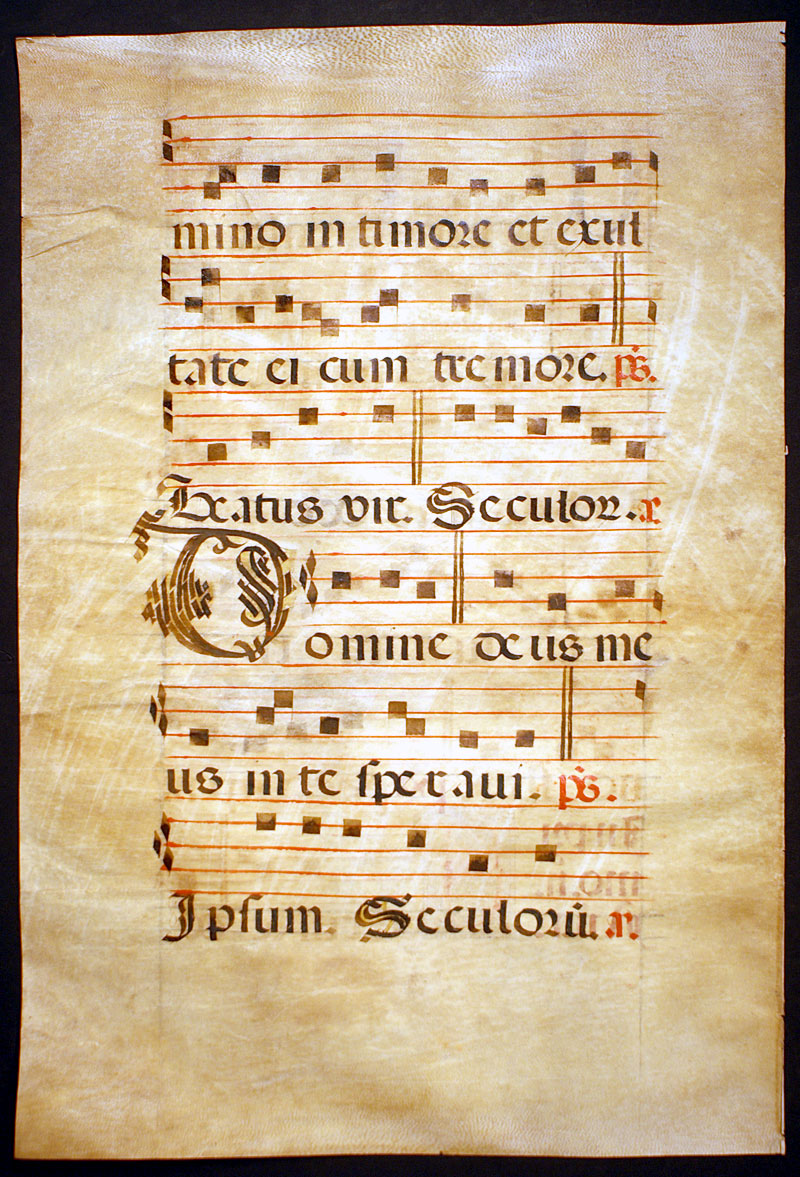 mino in timore et exul
tate ei cum tremore. ps.
Beatus vir. Seculor. a
Domine deus me
us in te speraui. ps.
Ipsum. Seculorū. a.